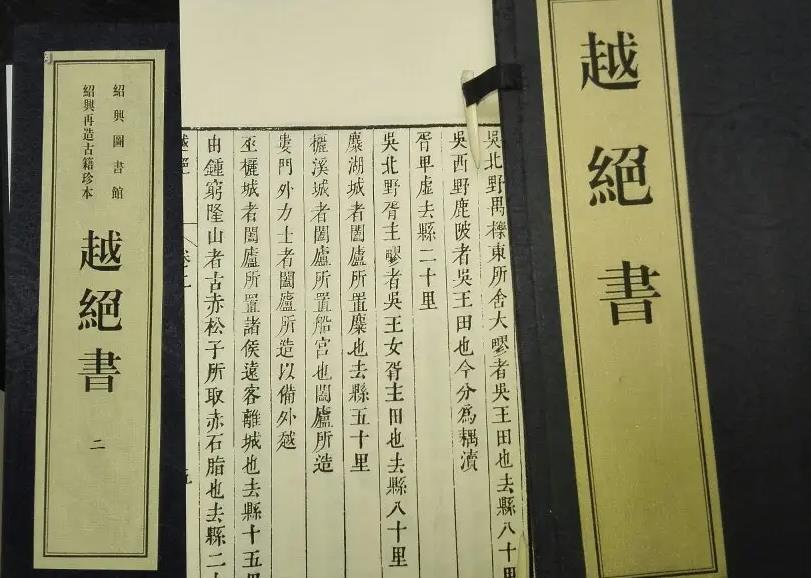 越絕書
吳北野禺櫟東所舍大疁者吳王田也去縣八十里
吳西野鹿陂者吳王田也今分爲耦瀆
胥卑虛去縣二十里
吳北野胥主疁者吳王女胥主田也去縣八十里
麋湖城者闔廬所置麋也去縣五十里
欐溪城者闔廬所置船宮也闔廬所造
婁門外力士者闔廬所造以備外越
巫欐城者闔廬所置諸侯遠客離城也去縣十五里
由鍾窮隆山者古赤松子所取赤石脂也去縣二
越絕
紹興圖書館
紹興再造古籍珍本
越絕書
二